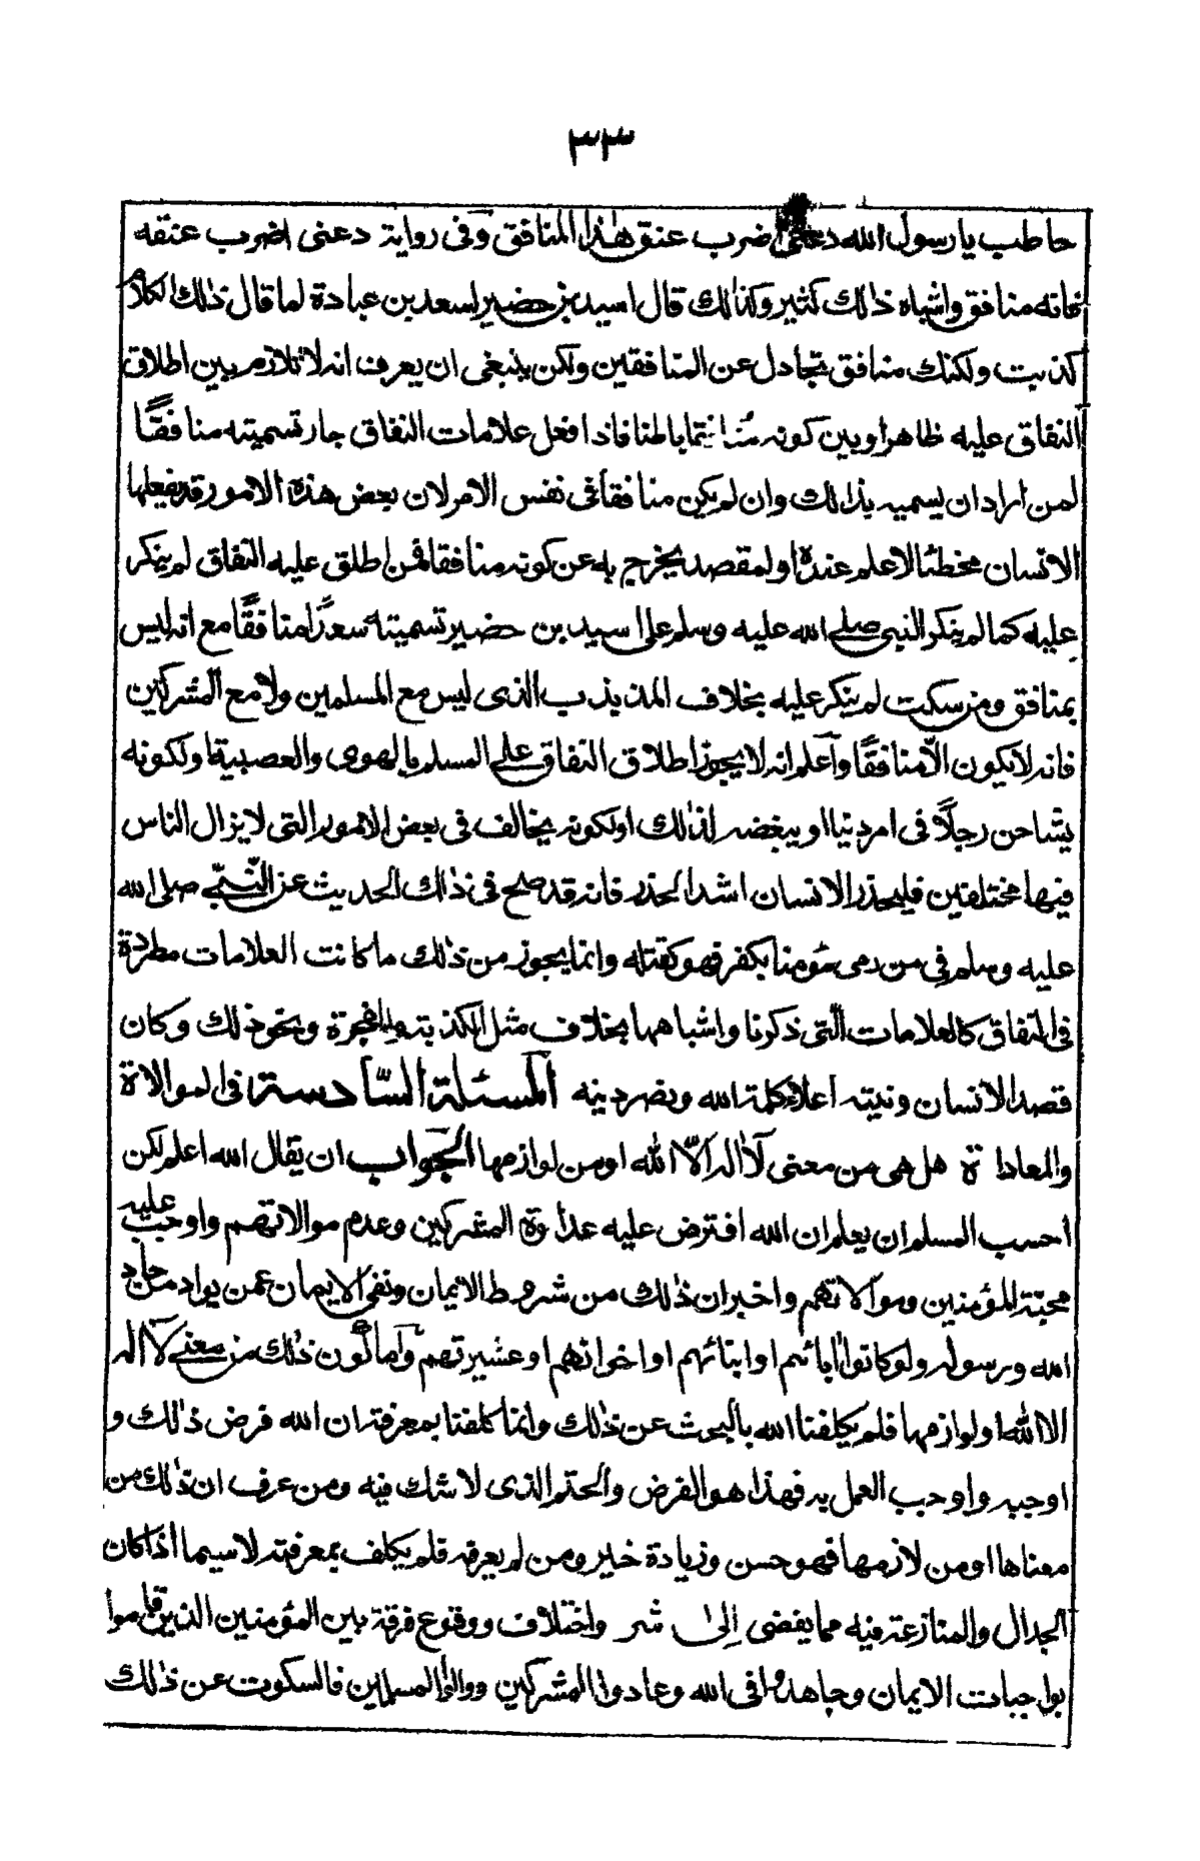 ٣٣
حاطب يا رسول الله دعني اضرب عنق هذا المنافق وفى رواية دعنى اضرب عنقه
فانه منافق واشباه ذالك كثير وكذالك قال اسيد بن حضير لسعد بن عبادة لما قال ذلك الكلام
كذبت ولكنك منافق تجادل عن المنافقين ولكن ينبغى ان يعرف انه لا تلازم بين اطلاق
النفاق عليه ظاهرا وبين كونه منافقا باطنا فاذا فعل علامات النفاق جاز تسميته منافقًا
لمن اراد ان يسميه بذالك وان لم يكن منافقا فى نفس الامر لان بعض هذه الامور قد يفعلها
الانسان مخطئا لا علم عنده او لمقصد يخرج به عن كونه منافقا فمن اطلق عليه النفاق لم ينكر
عليه كما لم ينكر النبى صلى الله عليه وسلم على اسيد بن حضير تسميته سعدًا منافقًا مع انه ليس
بمنافق ومن سكت لم ينكر عليه بخلاف المذبذب الذى ليس مع المسلمين ولا مع المشركين
فانه لا يكون الّا منافقًا واعلم انه لا يجوز اطلاق النفاق على المسلم بالهوى والعصبية او لكونه
يشاحن رجلًا فى امر دنيا او يبغضه لذالك او لكونه يخالف فى بعض الامور التى لا يزال الناس
فيها مختلفين فليحذر الانسان اشد الحذر فانه قد صح فى ذالك الحديث عن النبي صلى الله
عليه وسلم فى من رمى مؤمنا بكفر فهو كقتله وانما يجوز من ذلك ما كانت العلامات مطردة
فى النفاق كالعلامات التى ذكرنا واشباهها بخلاف مثل الكذبة والفجرة ونحو ذلك وكان
قصد الانسان ونيته اعلاء كلمة الله ونصر دينه المسئلة السّادسة فى الموالاة
والمعاداة هل هى من معنى لا اله الّا الله او من لوازمها الجواب ان يقال الله اعلم لكن
احسب المسلم ان يعلم ان الله افترض عليه عداوة المشركين وعدم موالاتهم واوجب عليه
محبّة المؤمنين وموالاتهم واخبر ان ذالك من شروط الايمان ونفى الايمان عمن يواد من حاد
الله ورسوله ولو كانوا اباءهم او ابنائهم او اخوانهم او عشيرتهم وأما كون ذلك من معنى لا اله
الا الله او لوازمها فلم يكلفنا الله بالبحث عن ذالك وانما كلفنا بمعرفة ان الله فرض ذالك و
اوجبه واوجب العمل به فهذا هو الفرض والحتم الذى لا شك فيه ومن عرف ان ذالك من
معناها او من لازمها فهو حسن وزيادة خير ومن لم يعرفه فلم يكلف بمعرفته لا سيما اذا كان
الجدال والمنازعة فيه مما يفضى إلى شر واختلاف ووقوع فرقة بين المؤمنين الذين قاموا
بواجبات الايمان وجاهدوا فى الله وعادوا المشركين ووالوا المسلمين فالسكوت عن ذالك